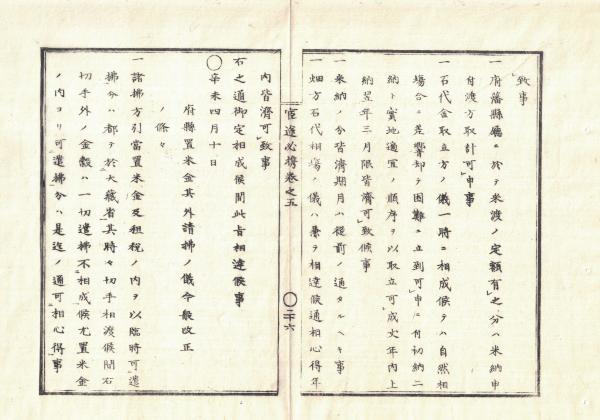 致事
一府藩縣廳ニ於テ米渡ノ定額有之分ハ米納申
付渡方取計可申事
一石代金取立方ノ儀一時ニ相成候テハ自然相
場合ニ差響却テ困難ニ立到可申ニ付初納二
納ト實地適宜ノ順序ヲ以取立可成丈年內上
納翌年三月限皆濟可致候事
一米納ノ分皆濟期月ハ從前ノ通タルヘキ事
一畑方石代相場ノ儀ハ兼テ相達候通相心得年
宦途必携卷之五
〇二十六
內皆濟可致事
右之通御定相成候間此旨相達候事
〇辛未四月十日
府縣置米金其外諸拂ノ儀令般改正
ノ條々
一諸拂方引當置米金及租稅ノ內ヲ以臨時可遣
拂分ハ都テ於大藏省其時々切手相渡候間右
切手外ノ金穀ハ一切遣拂不相成候尤置米金
ノ內ヨリ可遣拂分ハ是迄ノ通可相心得事